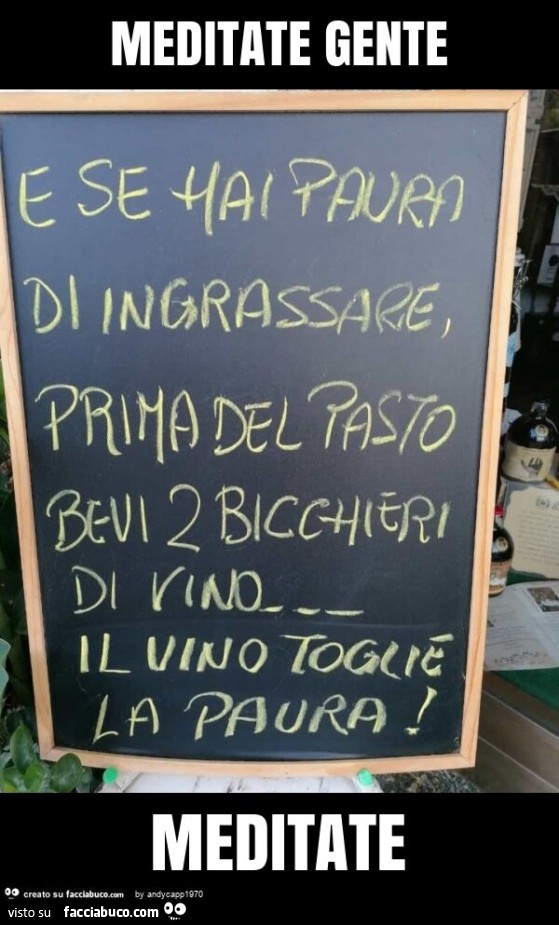 MEDITATE GENTE
E SE HAI PAURA
DI INGRASSARE,
PRIMA DEL PASTO
BEVI 2 BICCHIERI
DI VINO_ _ _
IL VINO TOGLIE
LA PAURA!
MEDITATE
creato su facciabuco.com by andycapp1970
visto su facciabuco.com